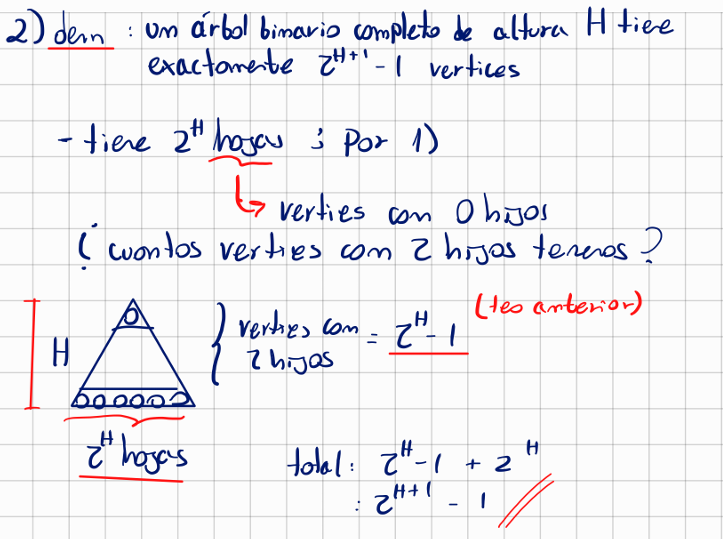 2) dem : um árbol binario completo de altura H tiene
exactamente 2^{H+1} - 1 vertices
- tiene 2^H hojas ; Por 1)
↳ verties con 0 hijos
¿ cuantos verties con 2 hijos tenemos ?
(teo anterior)
H
verties con
2 hijos
= 2^H - 1
2^H hojas
total : 2^H - 1 + 2^H
: 2^{H+1} - 1